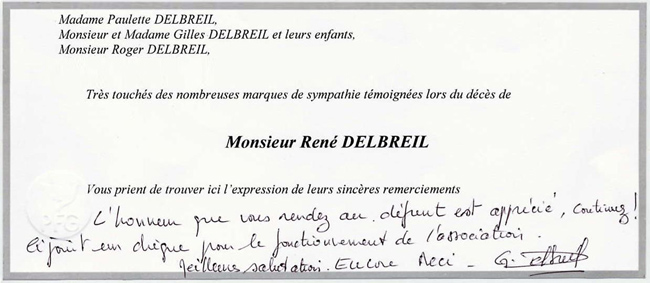 Madame Paulette DELBREIL,
Monsieur et Madame Gilles DELBREIL et leurs enfants,
Monsieur Roger DELBREIL,
Très touchés des nombreuses marques de sympathie témoignées lors du décès de
Monsieur René DELBREIL
Vous prient de trouver ici l'expression de leurs sincères remerciements
PFG
L'honneur que vous rendez au défunt est apprécié, continuez!
Ci joint un chèque pour le fonctionnement de l'association.
Meilleures salutation. Encore Merci - G. Delbreil